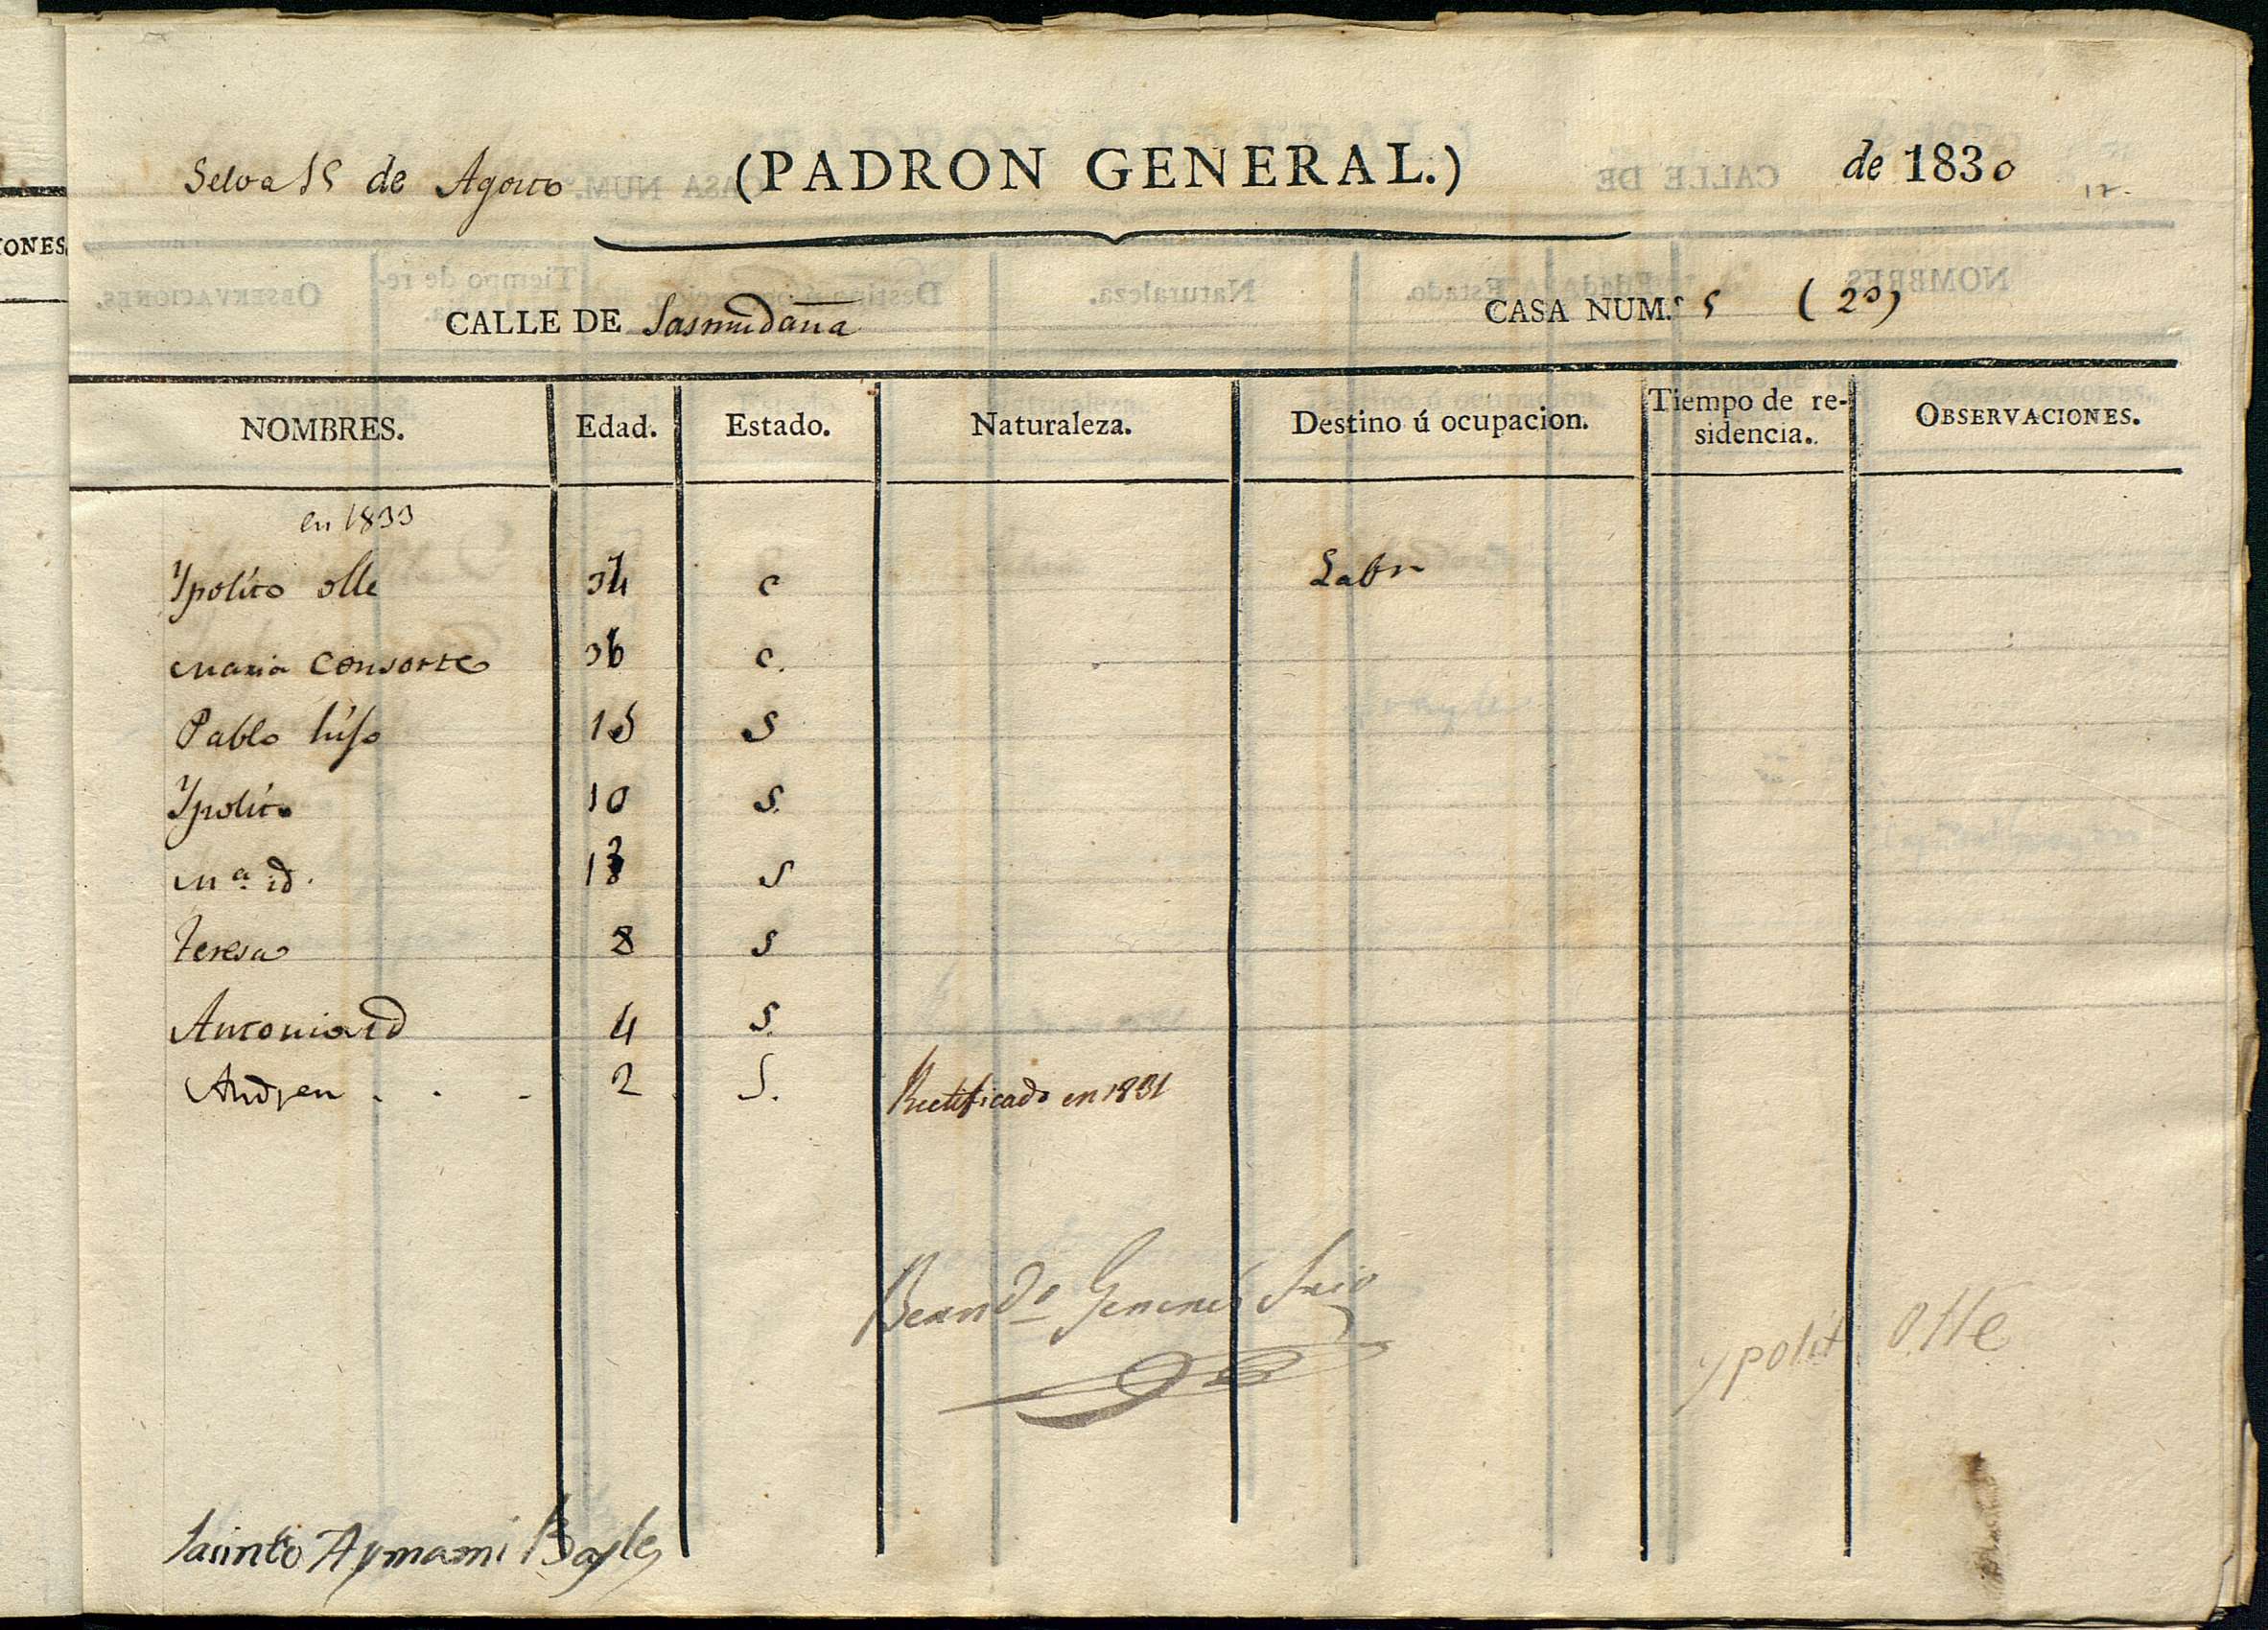 Selva 15 de Agosto (PADRON GENERAL.) de 1830
CALLE DE CASA NUM.º 5 (2º)
NOMBRES. Edad. Estado. Naturaleza. Destino ú ocupacion. Tiempo de re-sidencia. OBSERVACIONES.
en 1833
Ypolito olle c Labr
Maria Consorte 36 c.
Pablo hijo 15 S
Ypolito 10 S.
Mª id. S
Teresa 8 S
Antonia id 4 S.
Andreu . . . 2 S. Rectificado en 1831
Ypolit Olle
Jacinto Aymami Bayle
IONES